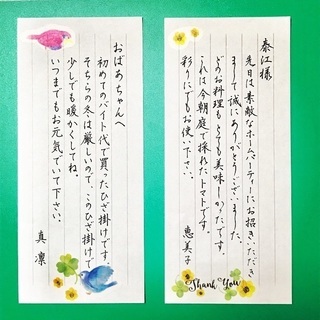 おばあちゃんへ
初めてのバイト代で買ったひざ掛けです。
そちらの冬は厳しいので、このひざ掛けで
少しでも暖かくしてね。
いつまでもお元気でいて下さい。
真凛
泰江様
先日は素敵なホームパーティーにお招きいただき
まして誠にありがとうございました。
どのお料理もとても美味しかったです。
これは今朝庭で採れたトマトです。
彩りにでもお使い下さい。
恵美子
Thank You